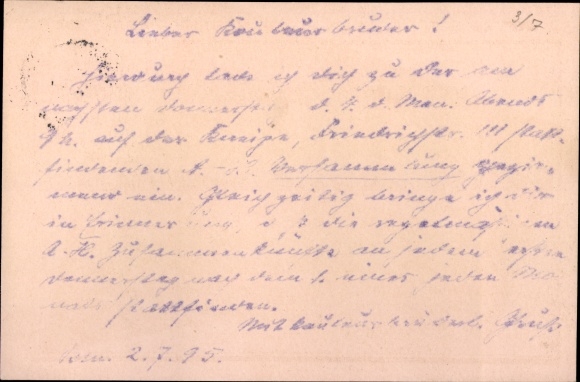 3/7
Lieber Konkneipbruder!
Hierdurch lade ich Dich zu der am
nächsten Donnerstag d. 4. d. Mon. Abends
9 h. auf der Kneipe, Friedrichstr. 111 statt-
findenden A. Versammlung
ein. Gleichzeitig bringe ich Dir
in Erinnerung, die regelmäßigen
A. H. Zusammenkünfte an jedem ersten
Donnerstag nach dem 1. eines jeden Mo-
nats stattfinden.
Mit
2.7.95.